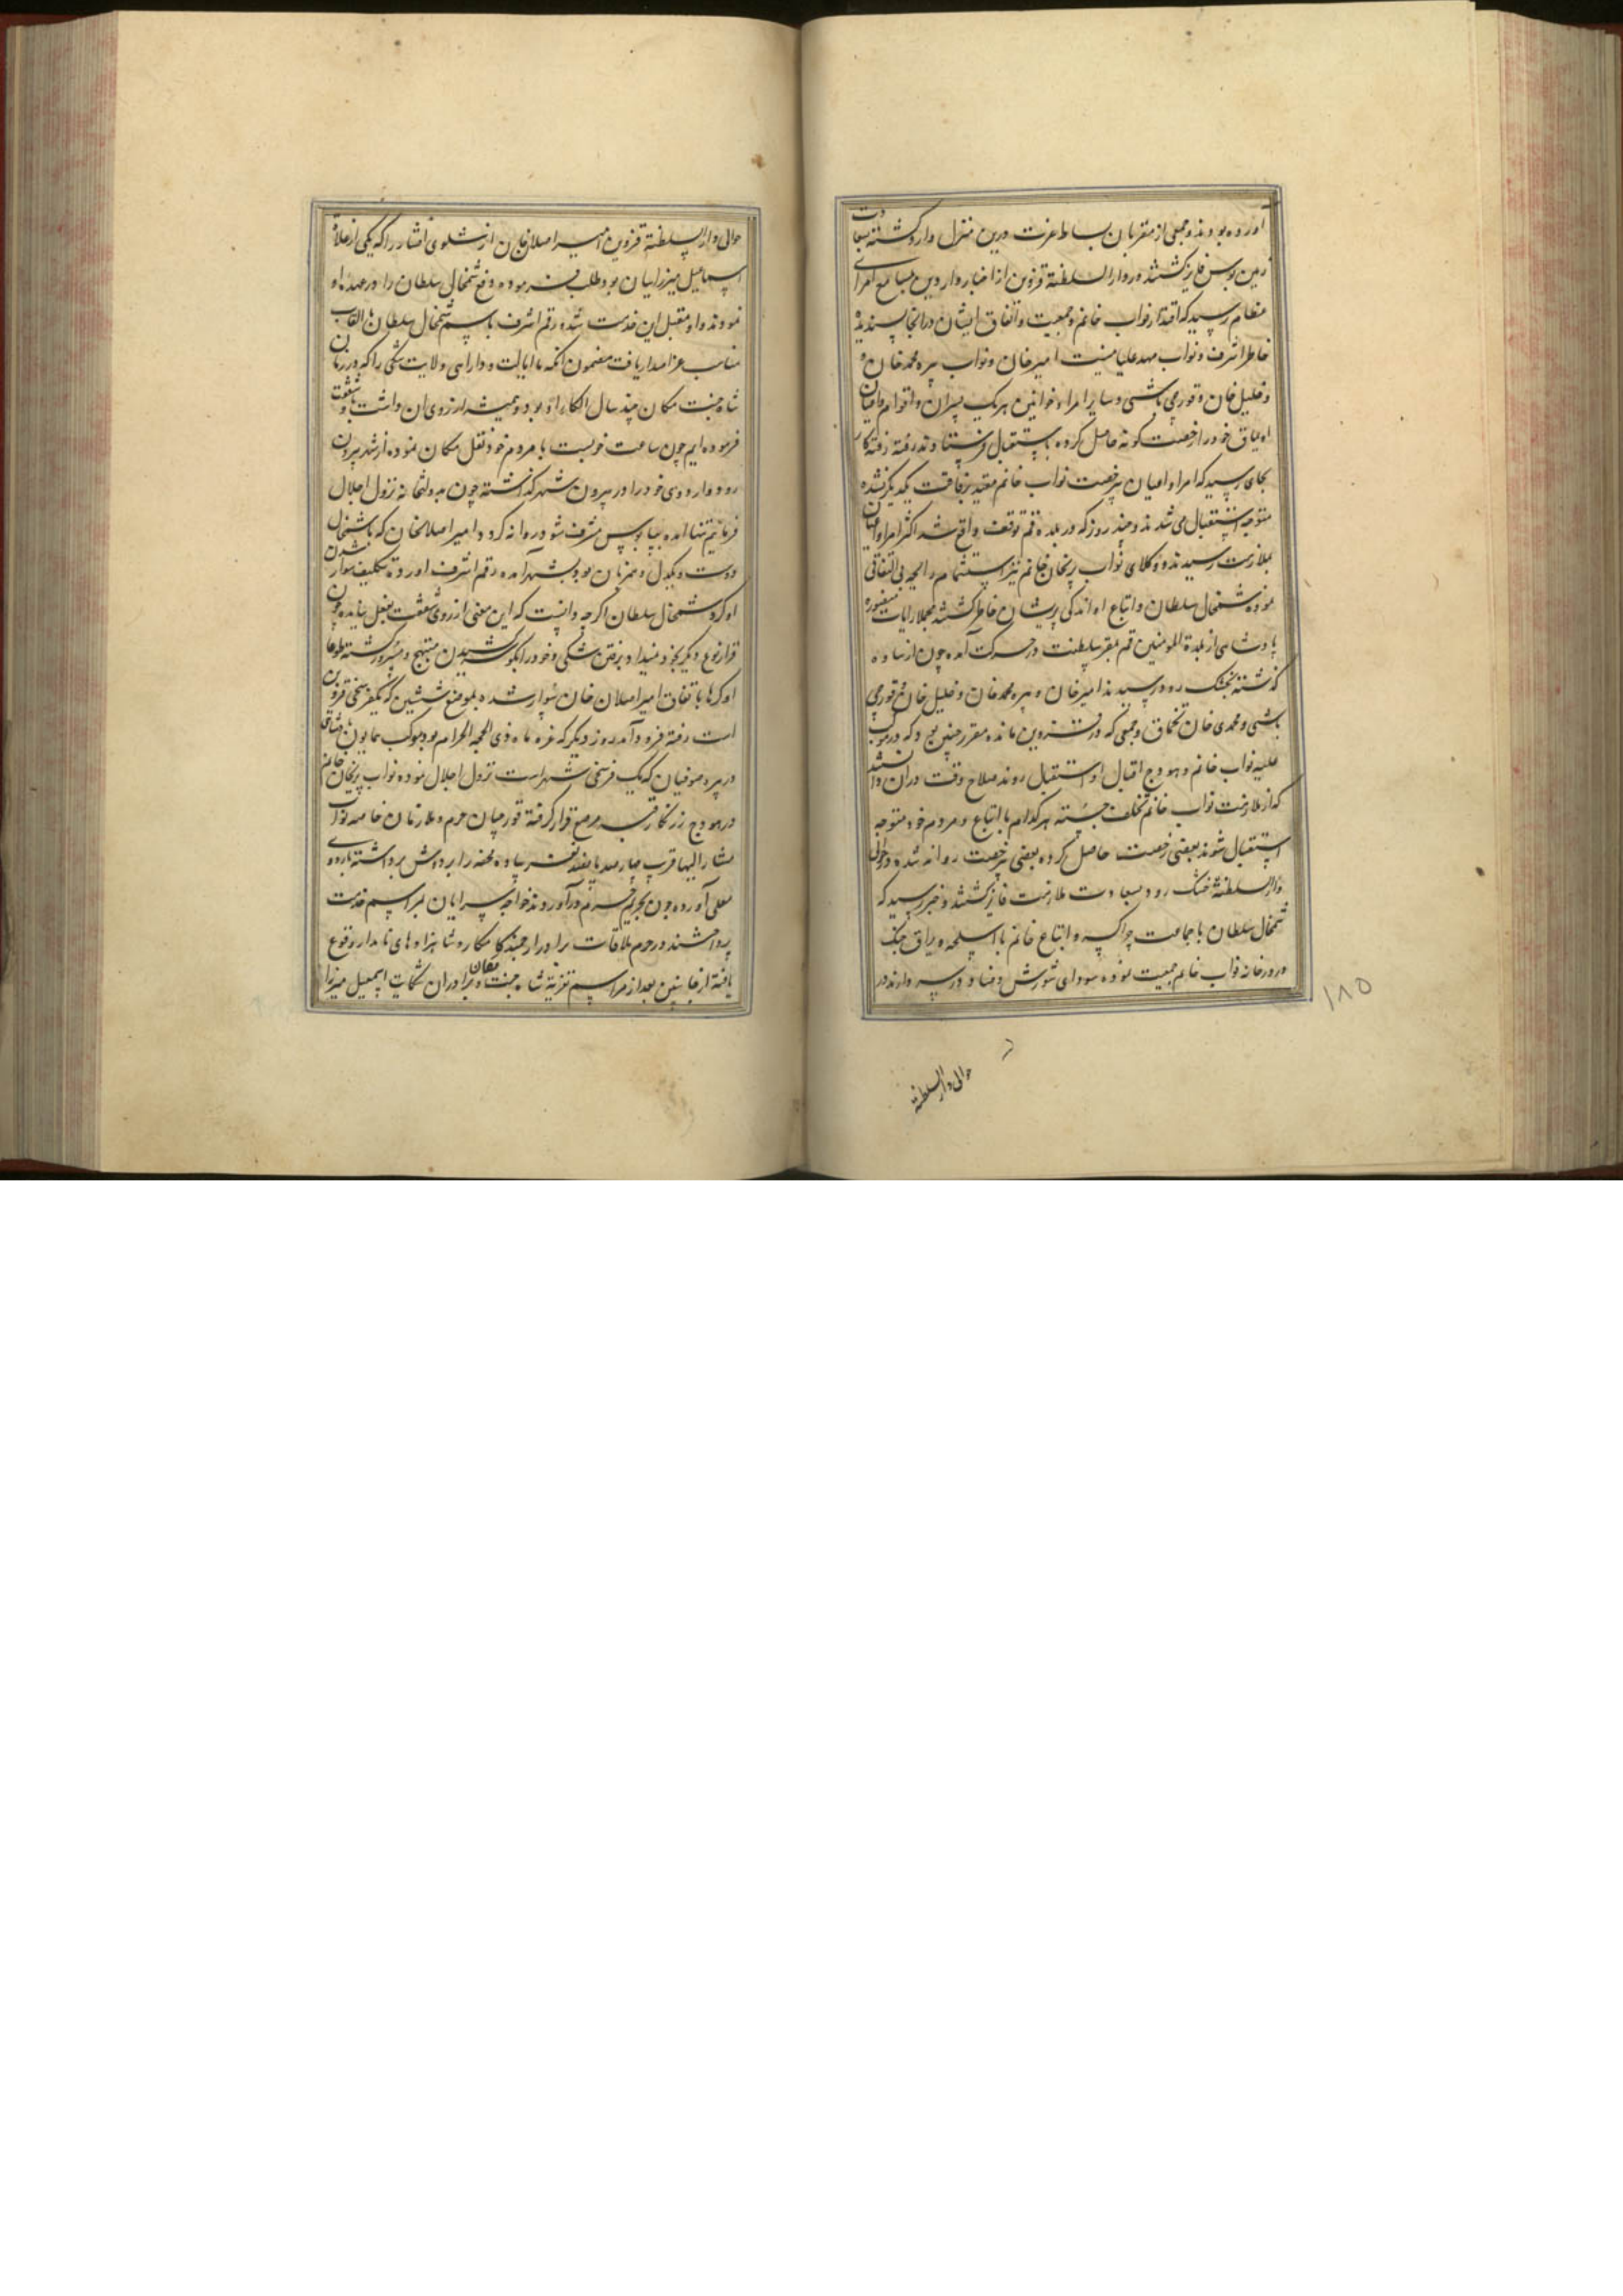 آورده بودند و جمعی از مقربان بساط عزت درین منزل وارد کشته بسعادت
زمین بوس فایز کشتند در دار السلطنة قزوین از اخبار واردین بمسامع امرای
عظام رسید که اقتدار نواب خانم و جمعیت و اتفاق ایشان در انجا پسندیده
خاطر اشرف و نواب مهد علیا نیست امیر خان و نواب پیره محمد خان و
و خلیل خان و قورچی باشی و سایر امراء و خوانین هر یک پسران و اقوام و اعیان
اویماق خود را رخصت کونه حاصل کرده باستقبال فرستادند رفته رفته کار
بجای رسید که امرا و اعیان بیرخصت نواب خانم مقید برفاقت یکدیکر نشده
متوجه استقبال می شدند و چند روز که در بلده قم توقف واقع شد اکثر امرا و اعیان
بملازمت رسیدند و وکلای نواب پریخان خانم نیز استشمام رایحه بی التفاتی
نموده شمخال سلطان و اتباع او اندکی پریشان خاطر کشتند مجملا رایات منصوره
پادشاهی از بلدة المومنین قم بمقر سلطنت در حرکت آمده چون از ساوه
کذشته بخشک رود رسیدند امیر خان و پیره محمد خان و خلیل خان و قورچی
باشی و محمدی خان تخماق و جمعی که در قزوین مانده مقرر چنین بود که در موکب
علیه نواب خانم و هودج اقبال او استقبال روند صلاح وقت در ان دانستند
که از ملازمت نواب خانم تخلف جسته هر کدام با اتباع و مردم خود متوجه
استقبال شوند بعضی رخصت حاصل کرده بعضی بیرخصت روانه شده در حوالی
دار السلطنة خشک رود بسعادت ملازمت فایز کشتند و خبر رسید که
شمخال سلطان با جماعت چراکسه و اتباع خانم با اسلحه و یراق جنک
در در خانه نواب خانم جمعیت نموده سودای شورش و فساد در سر دارند در
حوالی دار السلطنة
۱۸۵
حوالی دار السلطنة قزوین امیر اصلان خان ارشلوی افشار را که یکی از خلان
اسمعیل میرزاییان بود طلب فرموده دفع شمخال سلطان را در عهده او
نمودند و او متقبل این خدمت شده رقم اشرف باسم شمخال سلطان بالقاب
مناسب عز اصدار یافت مضمون انکه ما ایالت و دارایی ولایت شکی را که در زمان
شاه جنت مکان چند سال الکاء او بود و همیشه ارزوی ان داشت باو شفقت
فرموده ایم چون ساعت خوبست با مردم خود نقل مکان نموده از شهر بیرون
رود و اردوی خود را در بیرون شهر کذاشته چون بدولتخانه نزول اجلال
فرمائیم تنها امده بپابوس مشرف شود روانه کرد و امیر اصلانخان که با شمخال
دوست و یکدل و همزبان بود بشهر آمده رقم اشرف اورده تکلیف سوار شدن
او کرد شمخال سلطان اکرچه دانست که این معنی از روی شفقت بفعل نیامده چون
قرار نوع دیکر بخود نمیداد برفتن شکی و خود را بکوه کشیدن مبتهج و مسرور کشته طوعا
او کرها باتفاق امیر اصلان خان سوار شده بموضع ششین که یکفرسخی قزوین
است رفته فرود آمد روز دیکر که غره ماه ذی الحجه الحرام بود موکب همایون
در پیره صوفیان که یک فرسخی شهر است نزول اجلال نموده نواب پریخان خانم
در هودج زرنکار قبه مرصع قرار کرفته قورچیان حرم و ملازمان خاصه نواب
مشار الیها قریب چهار صد پانصد نفر پیاده محفه را بر دوش برداشته باردوی
معلی آورده چون بحریم حرم درآوردند خواجه سرایان بمراسم خدمت
پرداختند در حرم ملاقات برادر ارجمند کامکار و شاهزاده های نامدار وقوع
یافته از جانبین بعد از مراسم تعزیه شاه جنت مکان و برادران شکایت اسمعیل میرزا